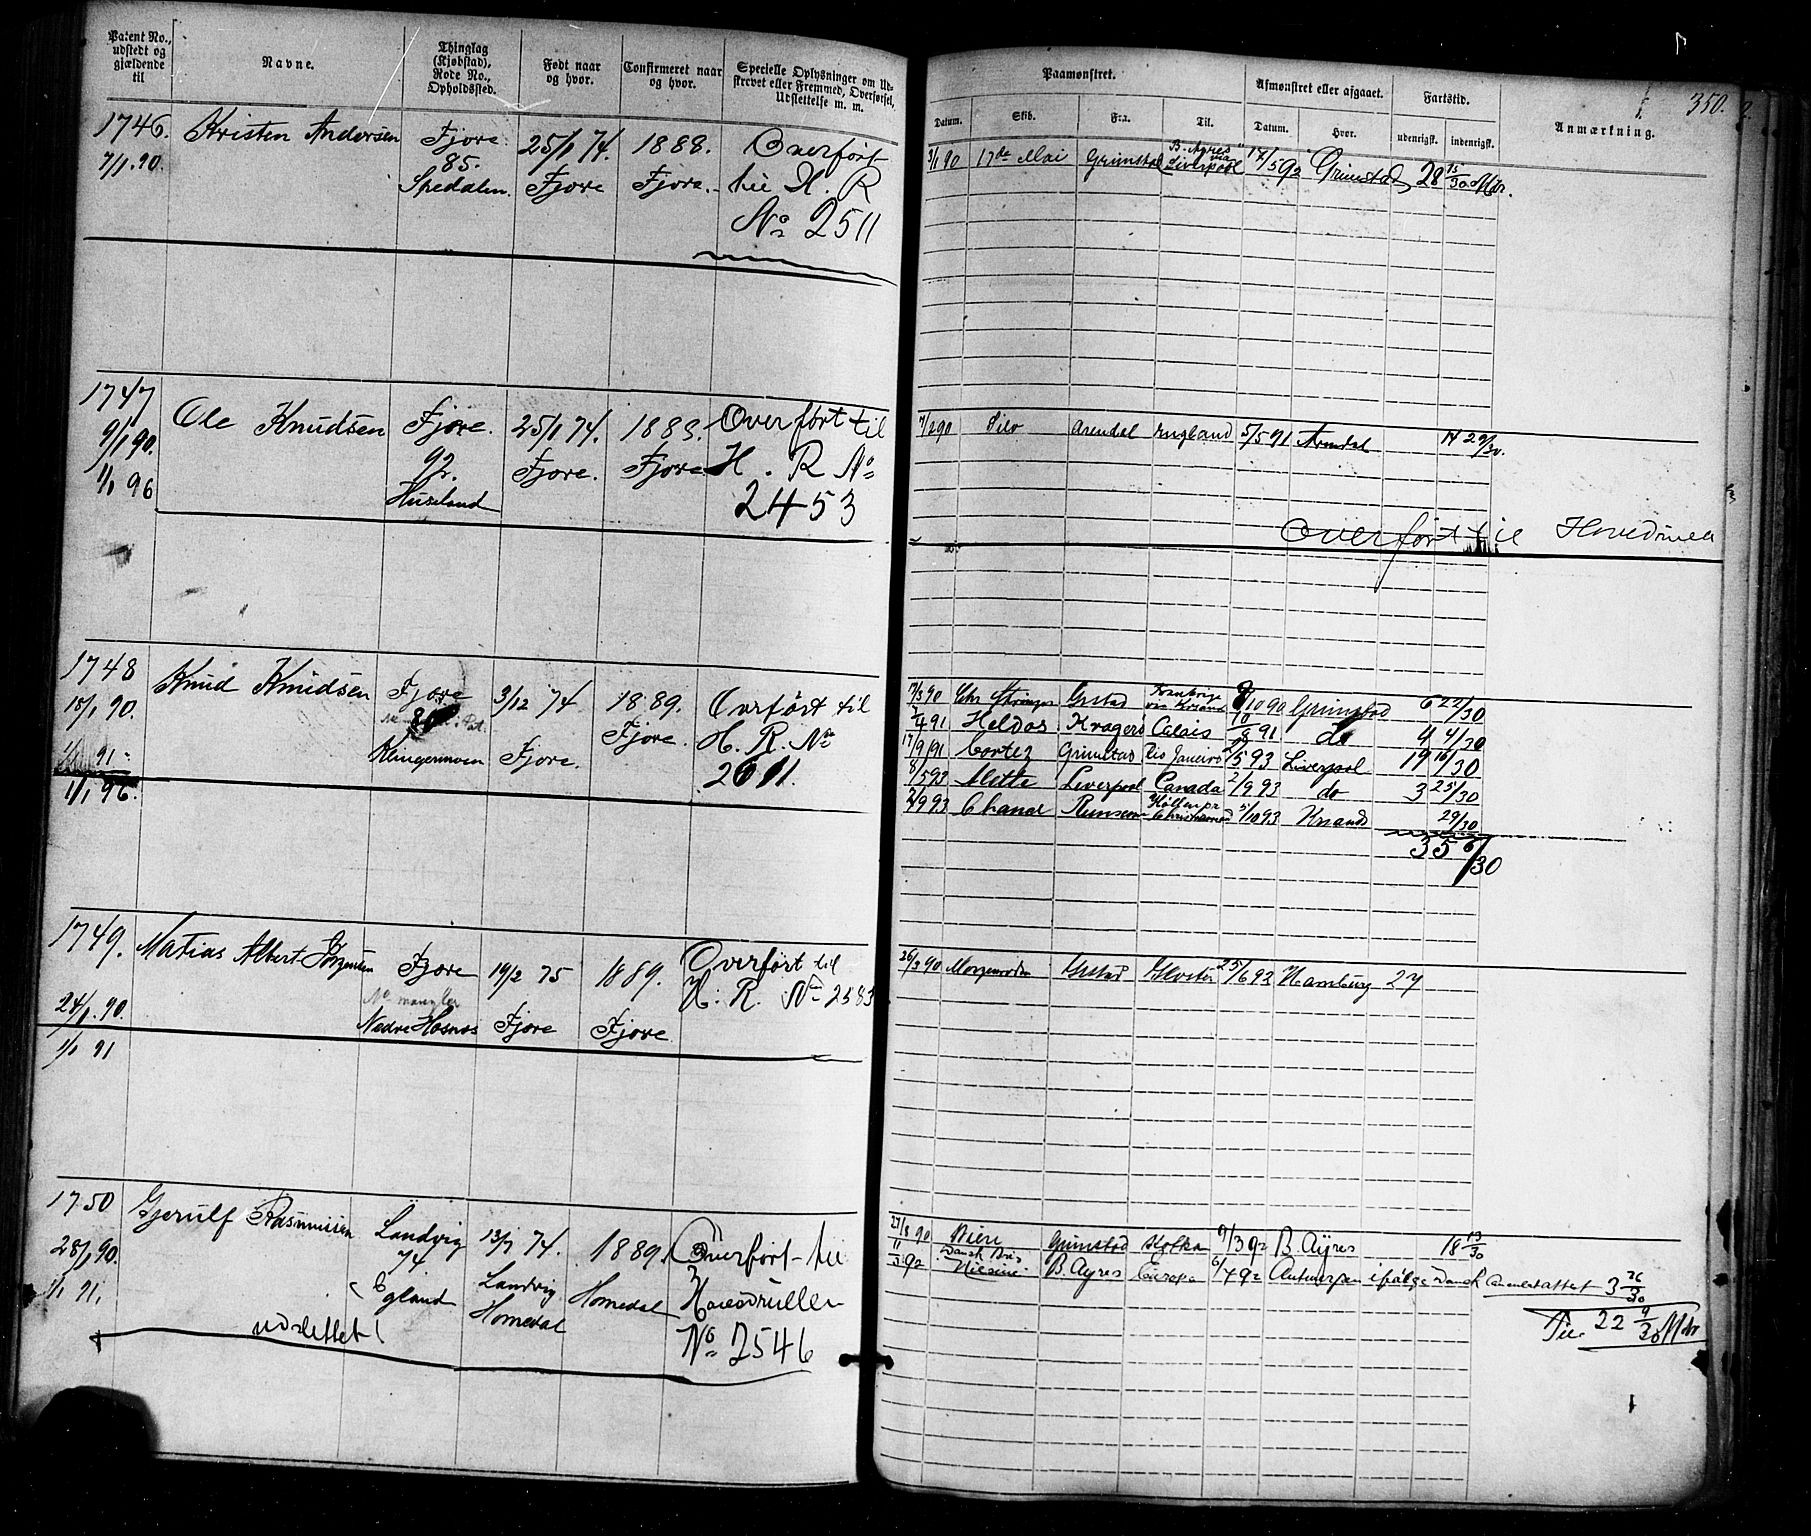 Patent No., udstedt og gjældende til
Navne.
Thinglag (Kjøbstad), Rode No., Opholdssted.
Født naar og hvor.
Confirmeret naar og hvor.
Specielle Oplysninger om Udskrevet eller Fremmed, Overførsel, Udslettelse m. m.
Paamønstret.
Datum.
Skib.
Fra.
Til.
Afmønstret eller afgaaet.
Datum.
Hvor.
Fartstid.
udenrigsk.
indenrigsk.
Anmærkning.
350.
1746.
7/1.90.
Kristen Andersen
Fjære
85.
Spedalen.
25/1 74.
Fjære
1888.
Fjære.
Overført
til H. R
No 2511
3/1 90 17de Mai Grimstad B. Ayres via Liverpool 17/5 92 Grimstad 28 15/30 Mdr.
1747
9/1 90.
1/1 96
Ole Knudsen
Fjære.
92.
Huseland
25/1 74.
Fjære.
1888.
Fjære
Overført til
H. R No
2453
7/2 90 Silo Arendal England 5/5 91 Arendal 14 29/30.
Overført til Hovedrullen
1748
15/1 90.
1/1 91.
1/1 96.
Knud Knudsen
Fjære
Klingermoen
3/12 74
Fjære.
1889.
Fjære.
Overført til
H. R. No
2611.
17/3 90 Grstad Frankrige via Krsand 10 90 Grimstad 6 22/30
2/4 91 Heldos Kragerø Calais 91 do 4 4/30
17/9 91 Cortez Grimstad Rio Janeiro 5 93 Liverpool 19 16/30
8/5 93 Mette Liverpool Canada 2/9 93 do 3 25/30
2/9 93 Chanar 5/10 93 Krsand 29/30
35 6/30
1749.
24/1.90.
1/1 91
Matias Albert Jørgensen
Fjære
No mangler
Nedre Hasnæs
19/2 75
Fjære
1889.
Fjære
Overført til
H. R. No 2583
26/3 90 Morgenroden Grstad 25/6 92 Hamburg 27
1750
28/1 90.
1/1 91.
Gjerulf Rasmussen
udslettet!
Landvig
74
Egland
13/7 74.
Landvig
Homedal
1889.
Homedal
Overført til
Hovedrullen
No 2546
27/8 90 Grimstad 9/3 92 B. Ayres 18 13/30
11/3 92 Dansk B. Ayres Europa 6/4 92 Antwerpen ifølge Dansk 3 26/30
22 9/30 Mdr